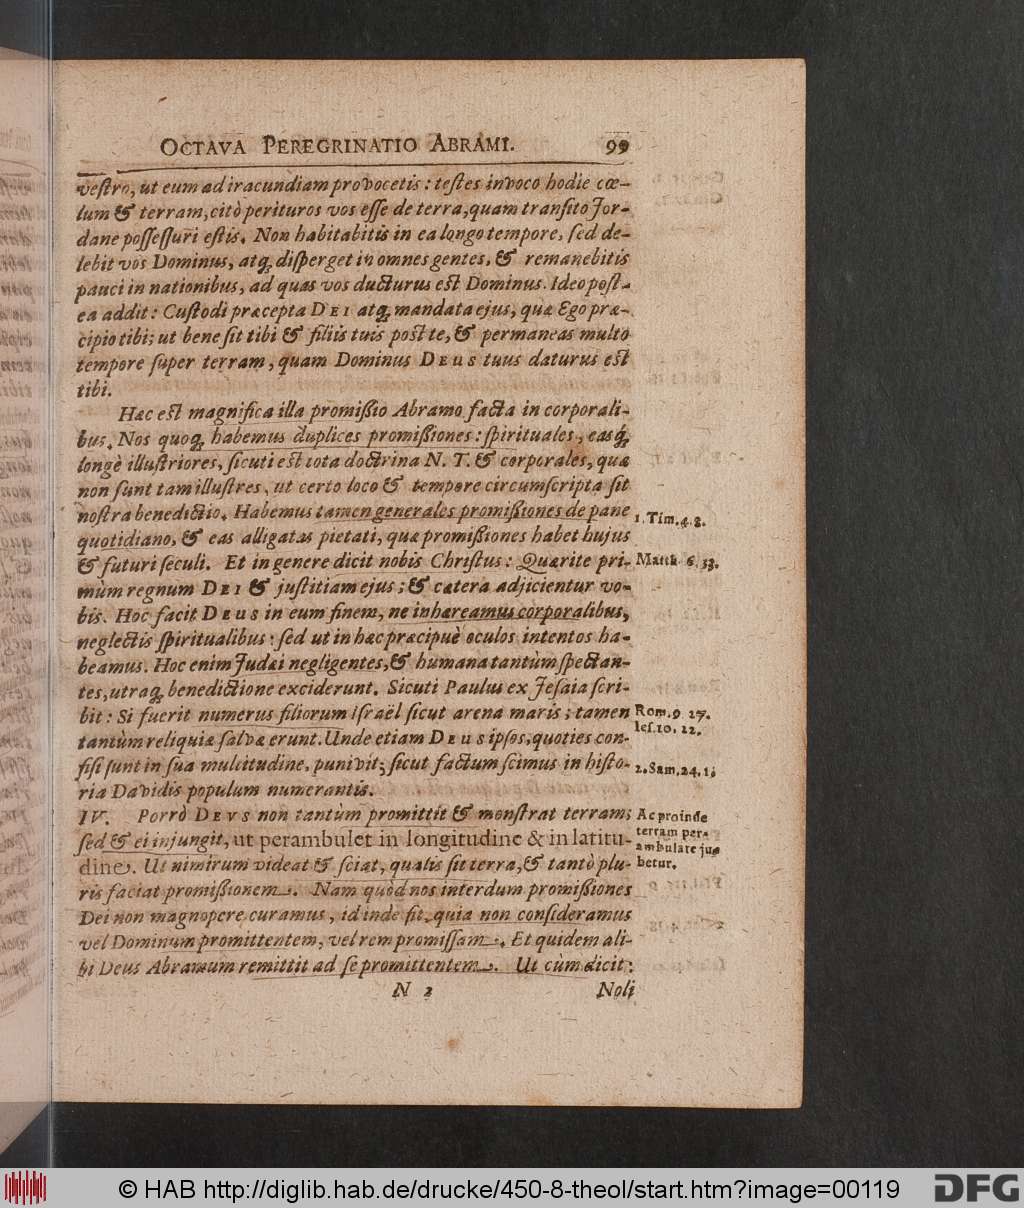 OCTAVA PEREGRINATIO ABRAMI. 99
veſtro, ut eum ad iracundiam provocetis: teſtes invoco hodie cœ-
lum & terram, citò perituros vos eſſe de terra, quam tranſito Jor-
dane poſſeſſuri eſtis. Non habitabitis in ea longo tempore, ſed de-
lebit vos Dominus, atq; diſperget in omnes gentes, & remanebitis
pauci in nationibus, ad quas vos ducturus eſt Dominus. Ideo poſt-
ea addit: Cuſtodi præcepta DEI atq; mandata ejus, quæ Ego præ-
cipio tibi; ut bene ſit tibi & filiis tuis poſt te, & permaneas multo
tempore ſuper terram, quam Dominus DEUS tuus daturus eſt
tibi.
Hæc eſt magnifica illa promiſſio Abramo facta in corporali-
bus. Nos quoq; habemus duplices promiſſiones: ſpirituales, easq́;
longè illuſtriores, ſicuti eſt tota doctrina N. T. & corporales, quæ
non ſunt tam illuſtres, ut certo loco & tempore circumſcripta ſit
noſtra benedictio. Habemus tamen generales promiſſiones de pane
quotidiano, & eas alligatas pietati, quæ promiſſiones habet hujus
1. Tim. 4. 8.
& futuri ſeculi. Et in genere dicit nobis Chriſtus: Quærite pri-
Matth. 6. 33.
mùm regnum DEI & juſtitiam ejus; & cætera adjicientur vo-
bis. Hoc facit DEUS in eum finem, ne inhæreamus corporalibus,
neglectis ſpiritualibus: ſed ut in hæc præcipuè oculos intentos ha-
beamus. Hoc enim Judæi negligentes, & humana tantùm ſpectan-
tes, utraq; benedictione exciderunt. Sicuti Paulus ex Jeſaia ſcri-
bit: Si fuerit numerus filiorum iſraël ſicut arena maris; tamen
Rom. 9. 27.
Ieſ. 10. 22.
tantùm reliquiæ ſalvæ erunt. Unde etiam DEUS ipſos, quoties con-
fiſi ſunt in ſua multitudine, punivit; ſicut factum ſcimus in hiſto-
2. Sam. 24. 1.
ria Davidis populum numerantis.
IV. Porrò DEVS non tantùm promittit & monſtrat terram;
ſed & ei injungit, ut perambulet in longitudine & in latitu-
dine. Ut nimirum videat & ſciat, qualis ſit terra, & tantò plu-
Ac proinde
terram per-
ambulare ju-
betur.
ris faciat promiſſionem. Nam quòd nos interdum promiſſiones
Dei non magnopere curamus, id inde fit, quia non conſideramus
vel Dominum promittentem, vel rem promiſſam. Et quidem ali-
bi Deus Abramum remittit ad ſe promittentem. Ut cùm dicit:
N 2 Noli
© HAB http://diglib.hab.de/drucke/450-8-theol/start.htm?image=00119
DFG